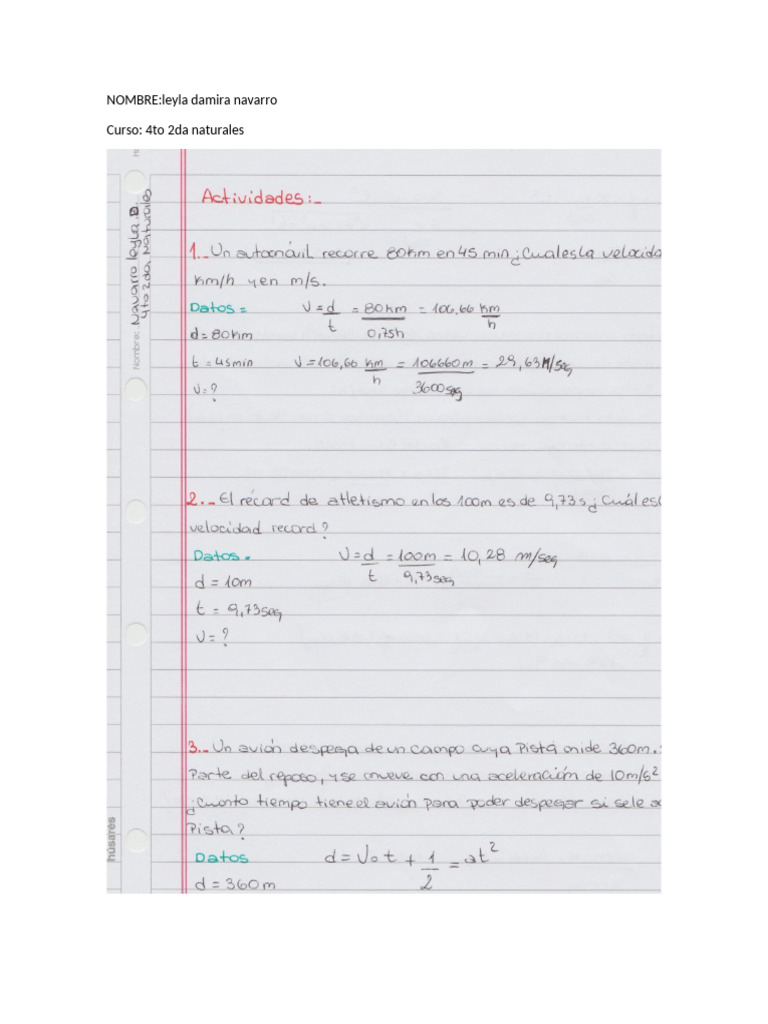 NOMBRE:leyla damira navarro
Curso: 4to 2da naturales
Nombre: Navarro leyla D.
4to 2da Naturales
Actividades:-
1.- Un automóvil recorre 80km en 45 min ¿Cual es la velocida
km/h y en m/s.
Datos = V = d/t = 80km/0,75h = 106,66 km/h
d = 80km
t = 45min V = 106,66 km/h = 106660m/3600seg = 29,63 M/seg
V = ?
2.- El récord de atletismo en los 100m es de 9,73s ¿Cuál es
velocidad record?
Datos = V = d/t = 100m/9,73seg = 10,28 m/seg
d = 10m
t = 9,73seg
V = ?
3.- Un avión despega de un campo cuya Pista mide 360m.
Parte del reposo, y se mueve con una aceleración de 10m/s²
¿Cuanto tiempo tiene el avión para poder despegar si se le
Pista?
Datos d = V₀t + 1/2 = at²
d = 360m
húsares